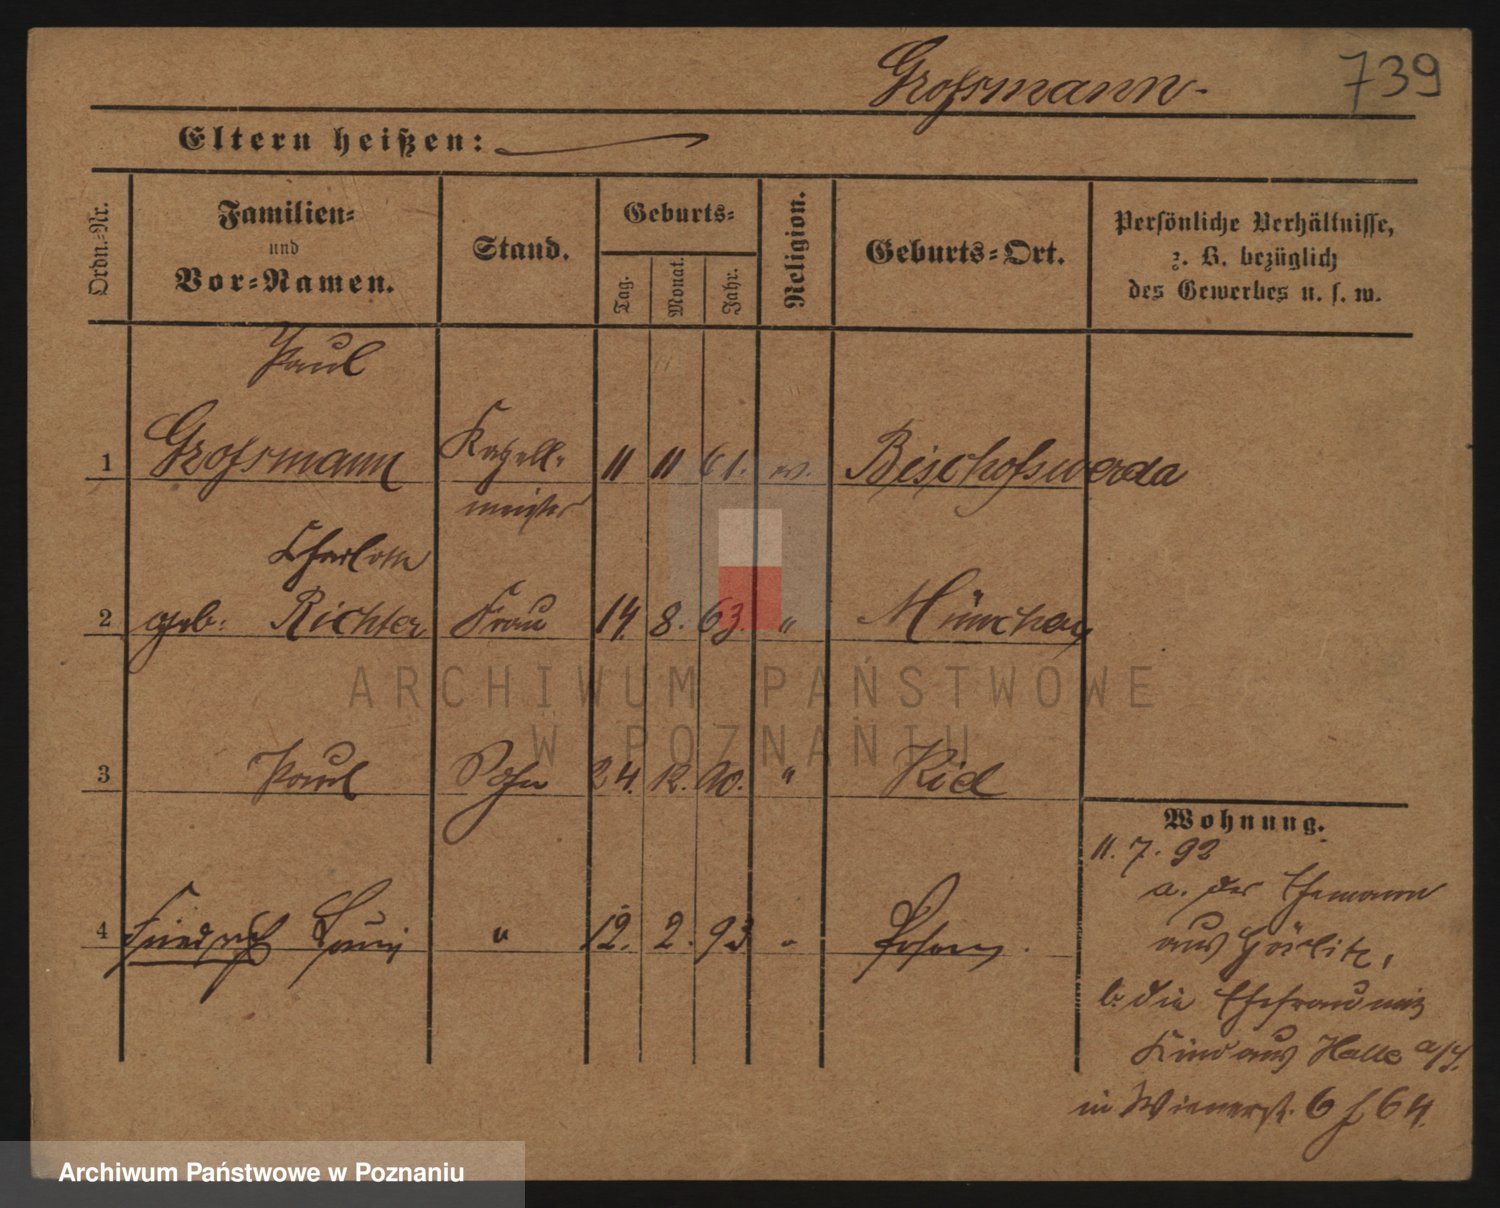 Grossmann
739
Eltern heißen:
Ordn.-Nr.
Familien-
und
Vor-Namen.
Stand.
Geburts-
Tag.
Monat.
Jahr.
Religion.
Geburts-Ort.
Persönliche Verhältnisse,
z. B. bezüglich
des Gewerbes u. s. w.
Paul
1 Grossmann Kapell- 11 11 61. ev. Bischofswerda
meister
Charlotte
2 geb. Richter Frau 14. 8. 63. " München
3 Paul Sohn 24. 12. 90. " Kiel
4 Friedrich " 12. 2. 93 " Posen.
Wohnung.
11. 7. 92
a. der Ehemann
aus Görlitz,
b. die Ehefrau mit
Kind aus Halle a/S.
in Wienerstr. 6 f 64.
ARCHIWUM PAŃSTWOWE
W POZNANIU
Archiwum Państwowe w Poznaniu